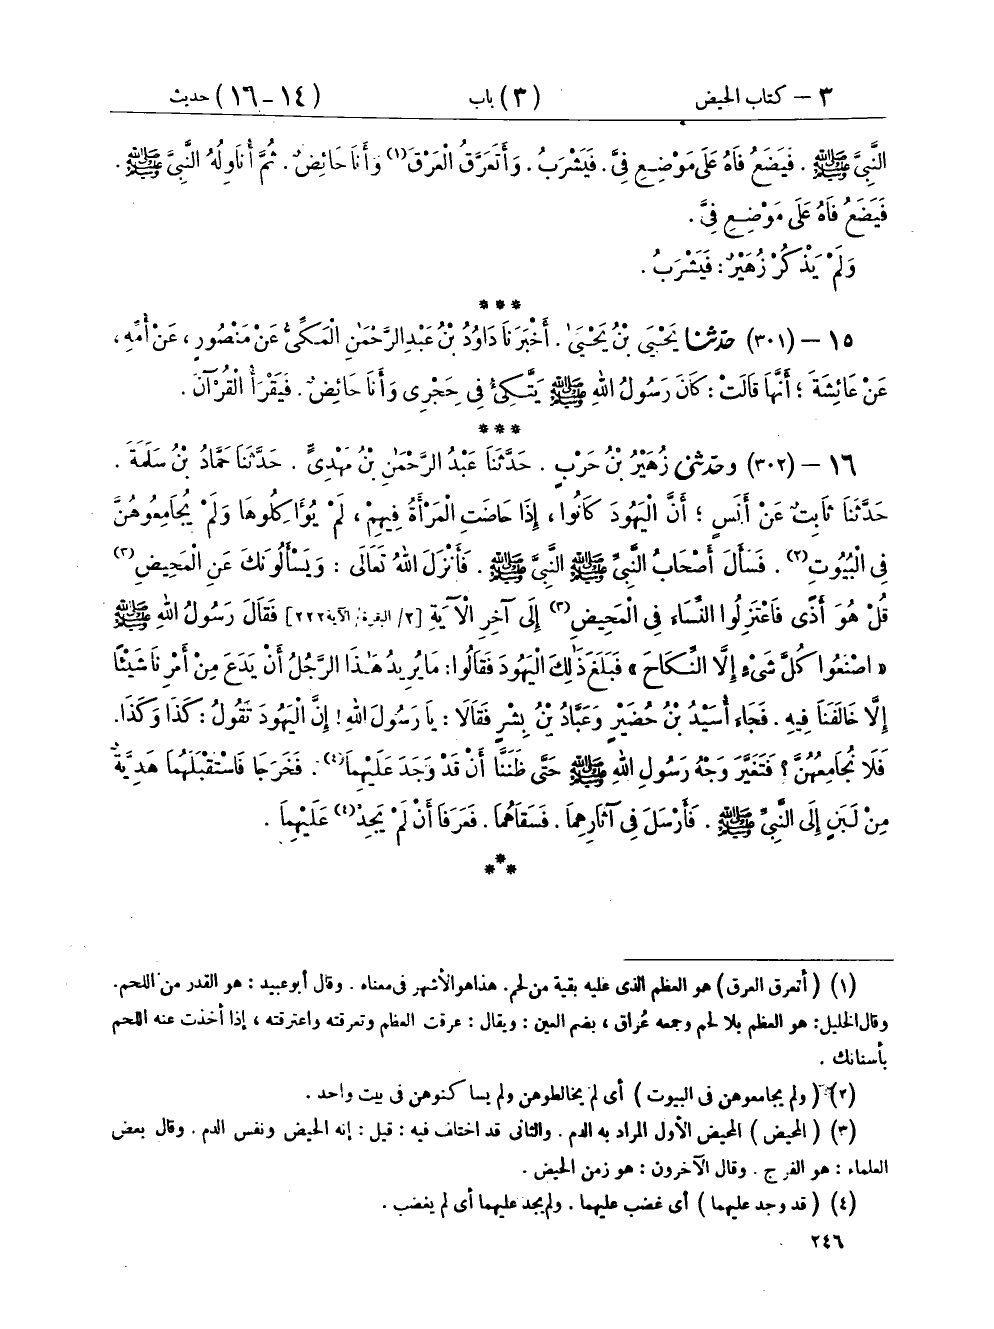 ٣ – كتاب الحيض (٣) باب (١٤–١٦) حديث
النَّبِيَّ ﷺ . فَيَضَعُ فَاهُ عَلَى مَوْضِعِ فِيَّ . فَيَشْرَبُ . وَأَتَعَرَّقُ الْعَرْقَ(١) وَأَنَا حَائِضٌ . ثُمَّ أُنَاوِلُهُ النَّبِيَّ ﷺ .
فَيَضَعُ فَاهُ عَلَى مَوْضِعِ فِيَّ .
وَلَمْ يَذْكُرْ زُهَيْرٌ : فَيَشْرَبُ .
***
١٥ – (٣٠١) حَدَّثَنَا يَحْيَى بْنُ يَحْيَىٰ . أَخْبَرَنَا دَاوُدُ بْنُ عَبْدِالرَّحْمٰنِ الْمَكِّيُّ عَنْ مَنْصُورٍ ، عَنْ أُمِّهِ ،
عَنْ عَائِشَةَ ؛ أَنَّهَا قَالَتْ : كَانَ رَسُولُ اللهِ ﷺ يَتَّكِئُ فِي حَجْرِي وَأَنَا حَائِضٌ . فَيَقْرَأُ الْقُرْآنَ .
***
١٦ – (٣٠٢) وحَدَّثَنِي زُهَيْرُ بْنُ حَرْبٍ . حَدَّثَنَا عَبْدُ الرَّحْمٰنِ بْنُ مَهْدِيٍّ . حَدَّثَنَا حَمَّادُ بْنُ سَلَمَةَ .
حَدَّثَنَا ثَابِتٌ عَنْ أَنَسٍ ؛ أَنَّ الْيَهُودَ كَانُوا ، إِذَا حَاضَتِ الْمَرْأَةُ فِيهِمْ ، لَمْ يُؤَاكِلُوهَا وَلَمْ يُجَامِعُوهُنَّ
فِي الْبُيُوتِ(٢) . فَسَأَلَ أَصْحَابُ النَّبِيِّ ﷺ النَّبِيَّ ﷺ . فَأَنْزَلَ اللهُ تَعَالَى : وَيَسْأَلُونَكَ عَنِ الْمَحِيضِ(٣)
قُلْ هُوَ أَذًى فَاعْتَزِلُوا النِّسَاءَ فِي الْمَحِيضِ(٣) إِلَى آخِرِ الْآيَةِ [٢/ البقرة/ الآية ٢٢٢] فَقَالَ رَسُولُ اللهِ ﷺ
« اصْنَعُوا كُلَّ شَيْءٍ إِلَّا النِّكَاحَ » فَبَلَغَ ذٰلِكَ الْيَهُودَ فَقَالُوا : مَا يُرِيدُ هٰذَا الرَّجُلُ أَنْ يَدَعَ مِنْ أَمْرِنَا شَيْئًا
إِلَّا خَالَفَنَا فِيهِ . فَجَاءَ أُسَيْدُ بْنُ حُضَيْرٍ وَعَبَّادُ بْنُ بِشْرٍ فَقَالَا : يَا رَسُولَ اللهِ ! إِنَّ الْيَهُودَ تَقُولُ : كَذَا وَكَذَا .
فَلَا نُجَامِعُهُنَّ ؟ فَتَغَيَّرَ وَجْهُ رَسُولِ اللهِ ﷺ حَتَّى ظَنَنَّا أَنْ قَدْ وَجَدَ عَلَيْهِمَا(٤) . فَخَرَجَا فَاسْتَقْبَلَهُمَا هَدِيَّةٌ
مِنْ لَبَنٍ إِلَى النَّبِيِّ ﷺ . فَأَرْسَلَ فِي آثَارِهِمَا . فَسَقَاهُمَا . فَعَرَفَا أَنْ لَمْ يَجِدْ(٤) عَلَيْهِمَا .
***
(١) ( أتعرق العرق ) هو العظم الذى عليه بقية من لحم . هذا هو الأشهر فى معناه . وقال أبو عبيد : هو القدر من اللحم .
وقال الخليل : هو العظم بلا لحم وجمعه عُراق ، بضم العين : ويقال : عرقت العظم وتعرقته واعترقته ، إذا أخذت عنه اللحم
بأسنانك .
(٢) ( ولم يجامعوهن فى البيوت ) أى لم يخالطوهن ولم يساكنوهن فى بيت واحد .
(٣) ( المحيض ) المحيض الأول المراد به الدم . والثانى قد اختلف فيه : قيل : إنه الحيض ونفس الدم . وقال بعض
العلماء : هو الفرج . وقال الآخرون : هو زمن الحيض .
(٤) ( قد وجد عليهما ) أى غضب عليهما . ولم يجد عليهما أى لم يغضب .
٢٤٦